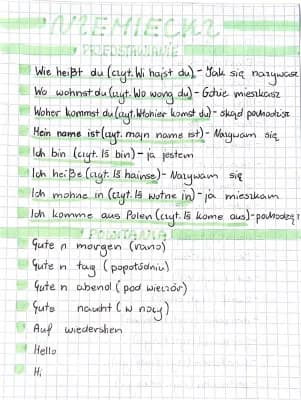 NIEMIECKI
PRZEDSTAWIANIE
Wie heißt du (czyt. Wi hajst du) - Jak się nazywasz
Wo wohnst du (czyt. Wo wong du) - Gdzie mieszkasz
Woher kommst du (czyt. Wohier komst du) - skąd pochodzisz
Mein name ist (czyt. majn name ist) - Nazywam się
Ich bin (czyt. Iß bin) - ja jestem
Ich heiße (czyt. Iß hainse) - Nazywam się
Ich mohne in (czyt. Iß wotne in) - ja mieszkam
Ich komme aus Polen (czyt. Iß kome aus) - pochodzę z
POWITANIA
Gute n morgen (rano)
Gute n tag (popołudniu)
Gute n abend (pod wieczór)
Gute naucht (w nocy)
Auf wiedershen
Hello
Hi